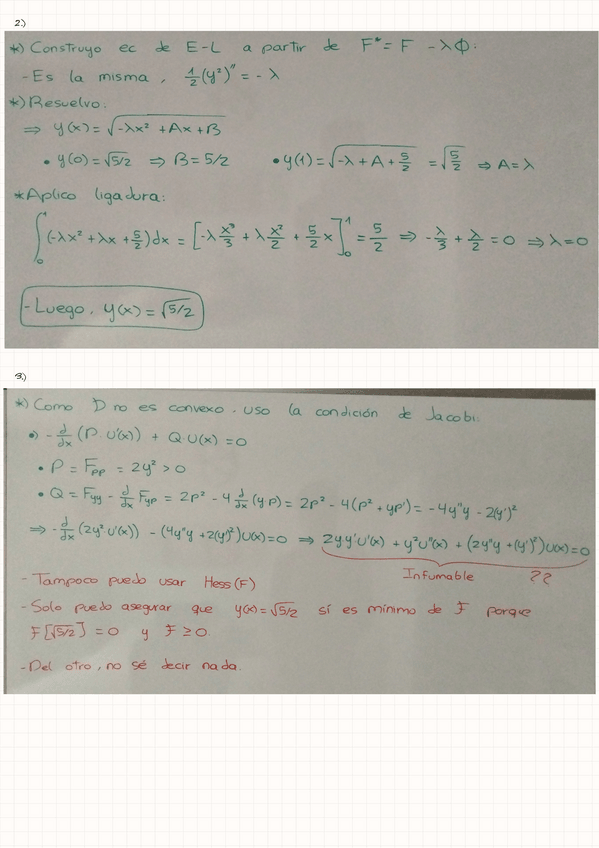 2.)
*) Construyo ec de E-L a partir de F* = F - λΦ:
- Es la misma, 1/2 (y²)'' = - λ
*) Resuelvo:
⇒ y(x) = √(-λx² + Ax + B)
• y(0) = √5/2 ⇒ B = 5/2 • y(1) = √(-λ + A + 5/2) = √(5/2) ⇒ A = λ
* Aplico ligadura:
∫₀¹ (-λx² + λx + 5/2) dx = [-λ x³/3 + λ x²/2 + 5/2 x]₀¹ = 5/2 ⇒ -λ/3 + λ/2 = 0 ⇒ λ = 0
- Luego, y(x) = √5/2
3.)
*) Como D no es convexo, uso la condición de Jacobi:
•) - d/dx (P·U'(x)) + Q·U(x) = 0
• P = Fpp = 2y² > 0
• Q = Fyy - d/dx Fyp = 2p² - 4 d/dx (yp) = 2p² - 4(p² + yp') = -4y''y - 2(y')²
⇒ - d/dx (2y² U'(x)) - (4y''y + 2(y')²)U(x) = 0 ⇒ 2yy'U'(x) + y²U''(x) + (2y''y + (y')²)U(x) = 0
Infumable ??
- Tampoco puedo usar Hess(F)
- Solo puedo asegurar que y(x) = √5/2 sí es mínimo de F porque
F[√5/2] = 0 y F ≥ 0.
- Del otro, no sé decir nada.